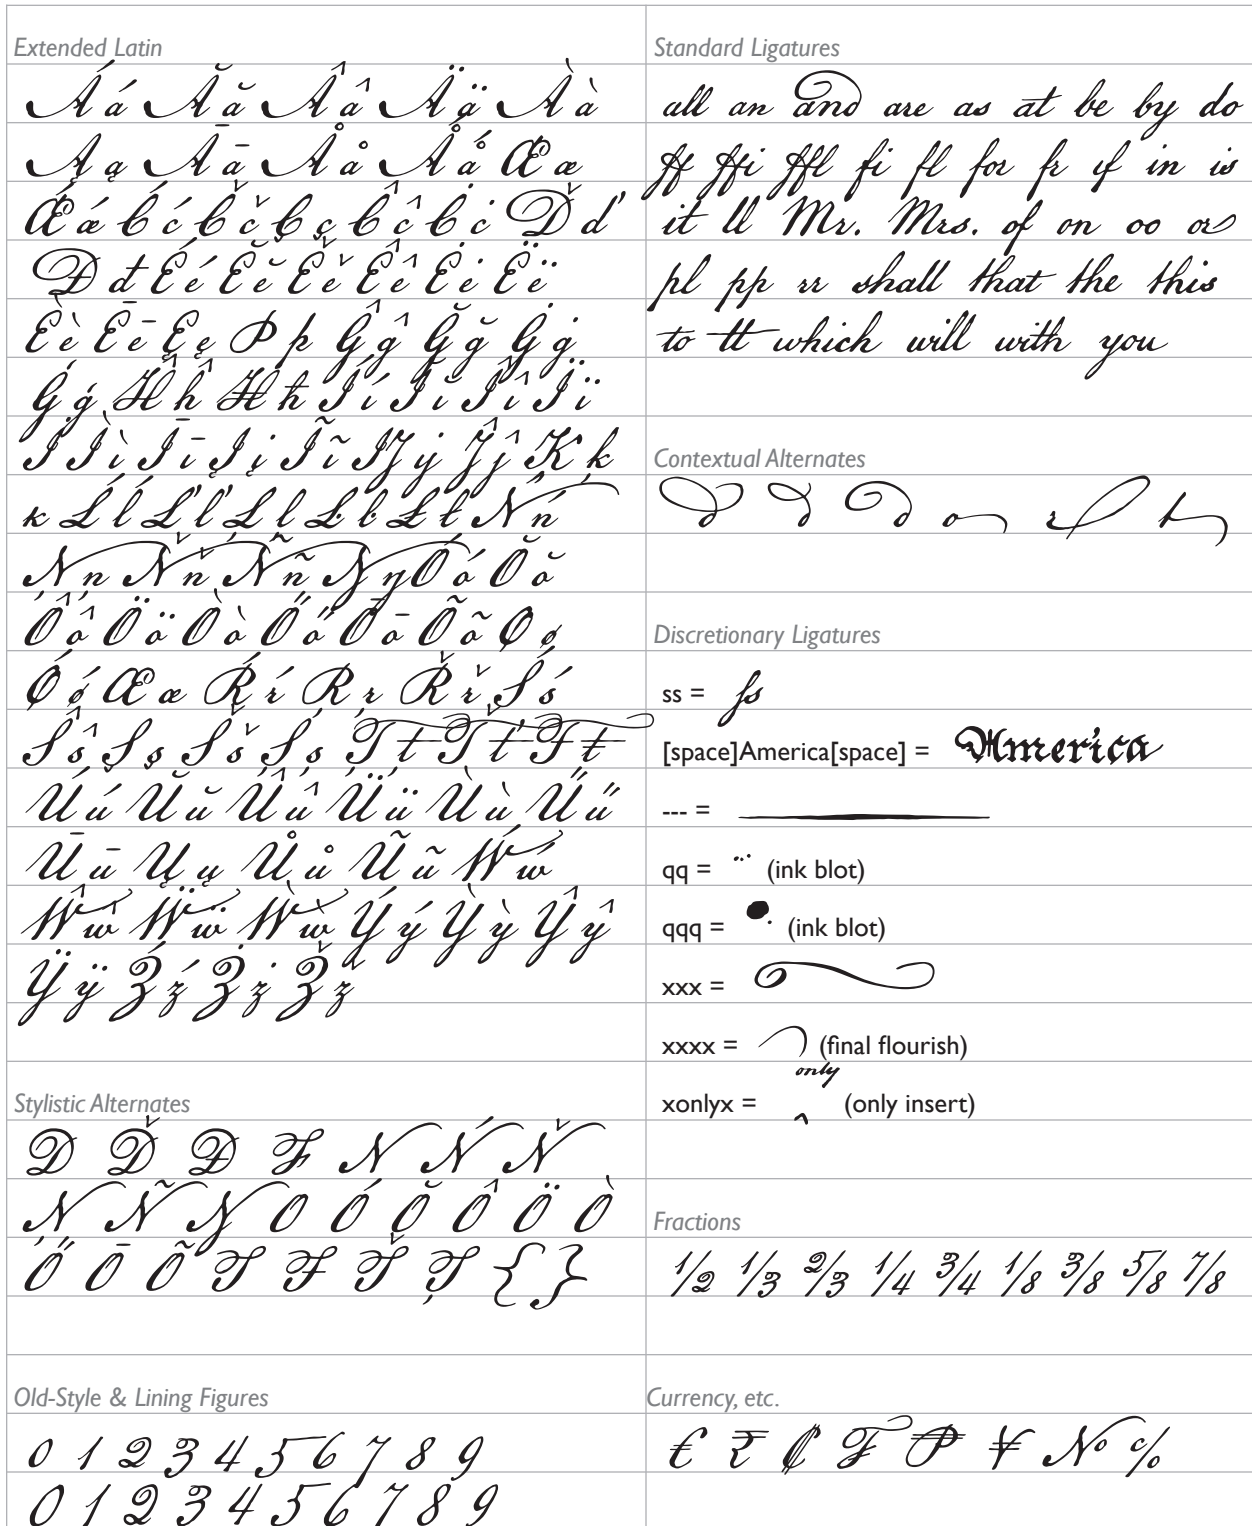 Extended Latin
Á á Ă ă Â â Ä ä À à
Ą ą Ā ā Å å Ǻ ǻ Æ æ
Ǽ ǽ Ć ć Č č Ç ç Ĉ ĉ Ċ ċ Ď ď
Đ đ É é Ĕ ĕ Ě ě Ê ê Ė ė Ë ë
È è Ē ē Ę ę Þ þ Ĝ ĝ Ğ ğ Ġ ġ
Ģ ģ Ĥ ĥ Ħ ħ Í í Ĭ ĭ Î î Ï ï
İ Ì ì Ī ī Į į Ĩ ĩ IJ ij Ĵ ĵ Ķ ķ
ĸ Ĺ ĺ Ľ ľ Ļ ļ Ŀ ŀ Ł ł Ń ń
Ņ ņ Ň ň Ñ ñ Ŋ ŋ Ó ó Ŏ ŏ
Ô ô Ö ö Ò ò Ő ő Ō ō Õ õ Ø ø
Ǿ ǿ Œ œ Ŕ ŕ Ŗ ŗ Ř ř Ś ś
Ŝ ŝ Ş ş Š š Ș ș Ţ ţ Ť ť Ŧ ŧ
Ú ú Ŭ ŭ Û û Ü ü Ù ù Ű ű
Ū ū Ų ų Ů ů Ũ ũ Ẃ ẃ
Ŵ ŵ Ẅ ẅ Ẁ ẁ Ý ý Ỳ ỳ Ŷ ŷ
Ÿ ÿ Ź ź Ż ż Ž ž
Stylistic Alternates
D Ď Đ F N Ń Ň
Ņ Ñ Ŋ O Ó Ŏ Ô Ö Ò
Ő Ō Õ T Ŧ Ť Ţ { }
Old-Style & Lining Figures
0 1 2 3 4 5 6 7 8 9
0 1 2 3 4 5 6 7 8 9
Standard Ligatures
all an and are as at be by do
ff ffi ffl fi fl for fr if in is
it ll Mr. Mrs. of on oo or
pl pp rr shall that the this
to tt which will with you
Contextual Alternates
d d d o r t
Discretionary Ligatures
ss = ss
[space]America[space] = America
--- =
qq = (ink blot)
qqq = (ink blot)
xxx =
xxxx = (final flourish)
xonlyx = only ‸ (only insert)
Fractions
1/2 1/3 2/3 1/4 3/4 1/8 3/8 5/8 7/8
Currency, etc.
€ ₹ ₡ ₣ ₱ ¥ № ℅